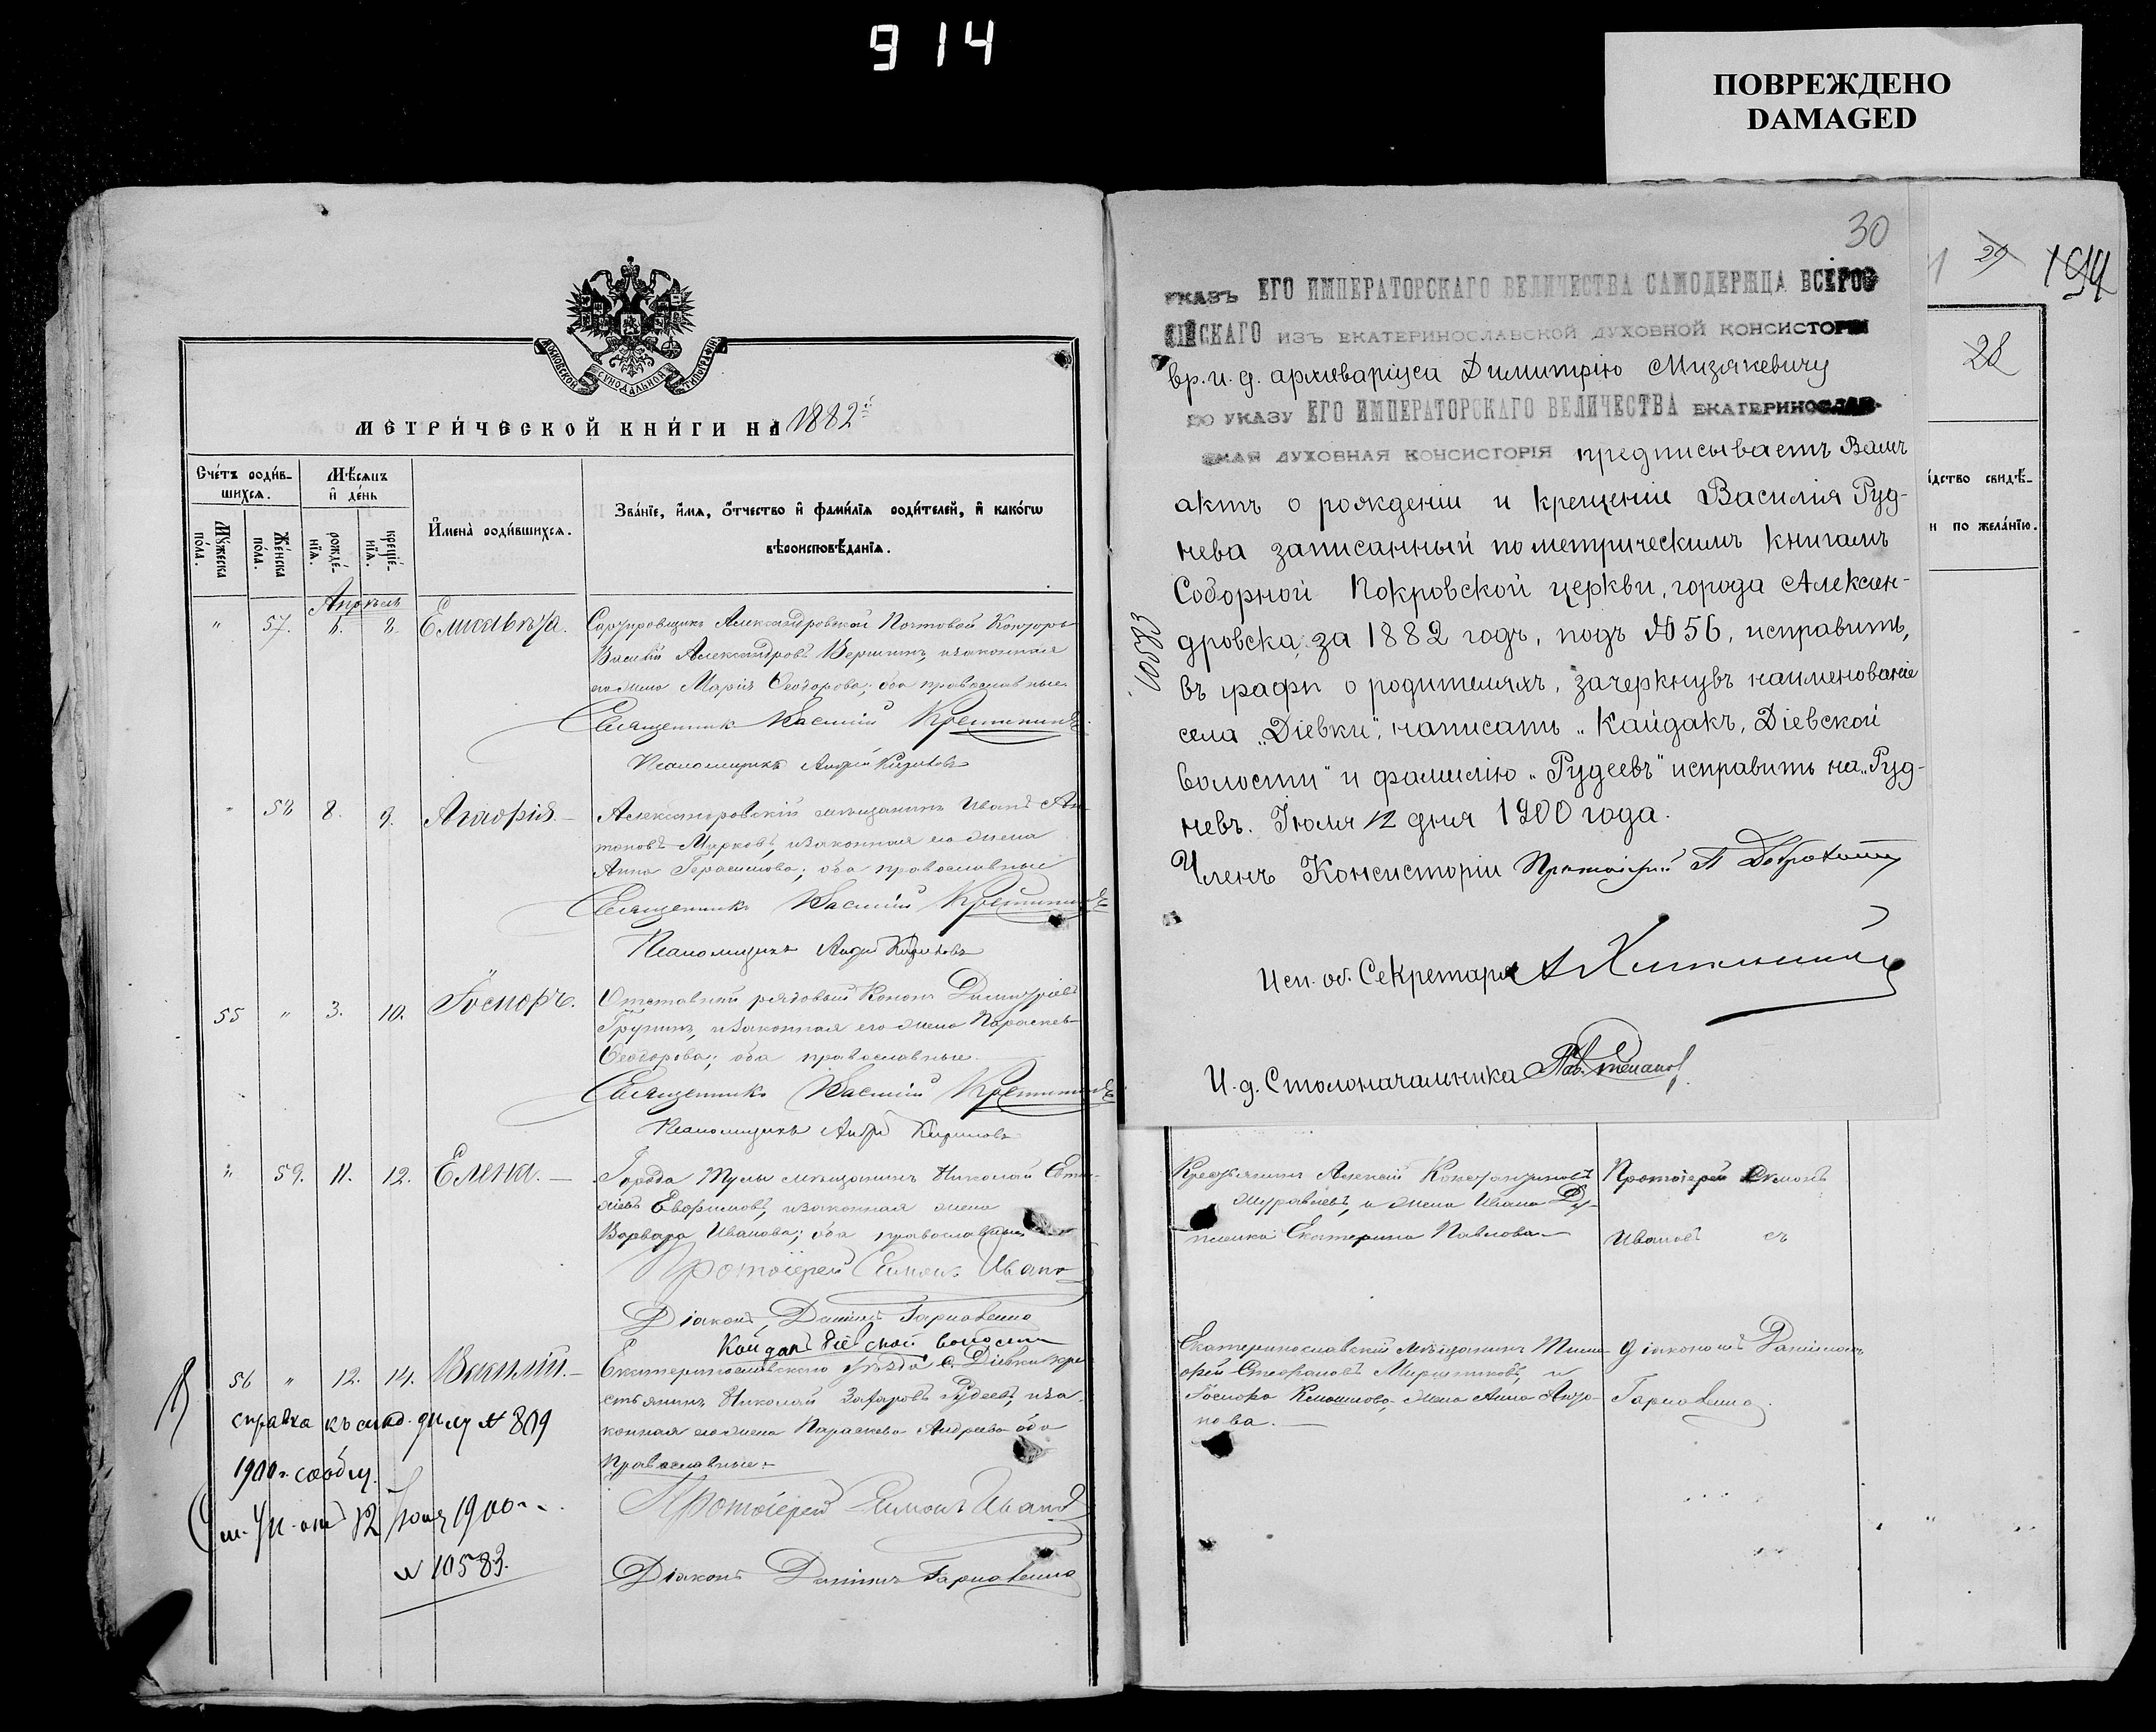 914
ПОВРЕЖДЕНО
DAMAGED
МОСКОВСКОЙ СѴНОДАЛЬНОЙ ТИПОГРАФІИ
МЕТРИ́ЧЕСКОЙ КНИ́ГИ НА 1882й
Сче́тъ роди́в-
шихся.
Мѣ́сяцъ
и де́нь
Му́жеска
по́ла.
Же́нска
по́ла.
рожде́-
нїя.
креще́-
нїя.
И҆мена̀ роди́вшихся.
Зва́нїе, и҆́мя, ѻ҆́тчество и҆ фами́лїя роди́телей, и҆ како́гѡ
вѣроисповѣ́данїя.
Апрѣль
" 57. 8. Елисавета.
Сортировщикъ Александровской Почтовой Конторы
Василій Александровъ Вершининъ, и законная
его жена Марія Ѳеодорова; оба православные
Священникъ Василій
Псаломщикъ Андрей
" 58 8. 9. Агаѳія
Александровскій мѣщанинъ Иванъ Ан-
тоновъ Марковъ, и законная его жена
Анна Герасимова; оба православные
Священникъ Василій
Псаломщикъ Андрей
55 " 3. 10.
Отставной рядовый Кононъ Димитріевъ
и законная его жена Параскева
Ѳеодорова; оба православные.
Священникъ Василій
Псаломщикъ Андрей
" 59. 11. 12. Елена.
Города Тулы мѣщанинъ Николай
Евфимовъ, и законная жена
Варвара Иванова; оба православные
Протоіерей Симонъ Ивановъ
Діаконъ Даніилъ
Кайдакъ Діевской волости
56 " 12. 14. Василій.
Екатеринославскаго уѣзда с. Діевки кре-
стьянинъ Николай Захаровъ Рудеевъ, и за-
конная его жена Параскева Андреева оба
православные.
Протоіерей Симонъ Ивановъ
Діаконъ Даніилъ
справка къ дѣлу № 809
1900 г.
12 Іюля 1900 г.
№ 10583.
30
УКАЗЪ ЕГО ИМПЕРАТОРСКАГО ВЕЛИЧЕСТВА САМОДЕРЖЦА ВСЕРОС
СІЙСКАГО ИЗЪ ЕКАТЕРИНОСЛАВСКОЙ ДУХОВНОЙ КОНСИСТОРІИ
вр. и. д. архиваріуса Димитрію Мизякевичу
ПО УКАЗУ ЕГО ИМПЕРАТОРСКАГО ВЕЛИЧЕСТВА ЕКАТЕРИНОСЛАВ-
СКАЯ ДУХОВНАЯ КОНСИСТОРІЯ предписываетъ Вамъ
актъ о рожденіи и крещеніи Василія Руд-
нева записанный по метрическимъ книгамъ
Соборной Покровской церкви, города Алексан-
дровска, за 1882 годъ, подъ № 56, исправить,
въ графѣ о родителяхъ, зачеркнувъ наименованіе
села „Діевки", написать „Кайдакъ, Діевской
волости" и фамилію „Рудеевъ" исправить на „Руд-
невъ. Іюля 12 дня 1900 года.
10583
Членъ Консисторіи Протоіерей
Исп. об. Секретаря
И. д. Столоначальника
29
28
ѣ́дство свидѣ-
и по жела́нїю.
Крестьянинъ Алексѣй Константиновъ
Журавлевъ, и жена Ивана
Екатерина Павлова
Протоіерей Симонъ
Ивановъ съ
Екатеринославскій мѣщанинъ Тимо-
ѳей Стефановъ и
жена Анна Анто-
нова.
діакономъ Даніиломъ